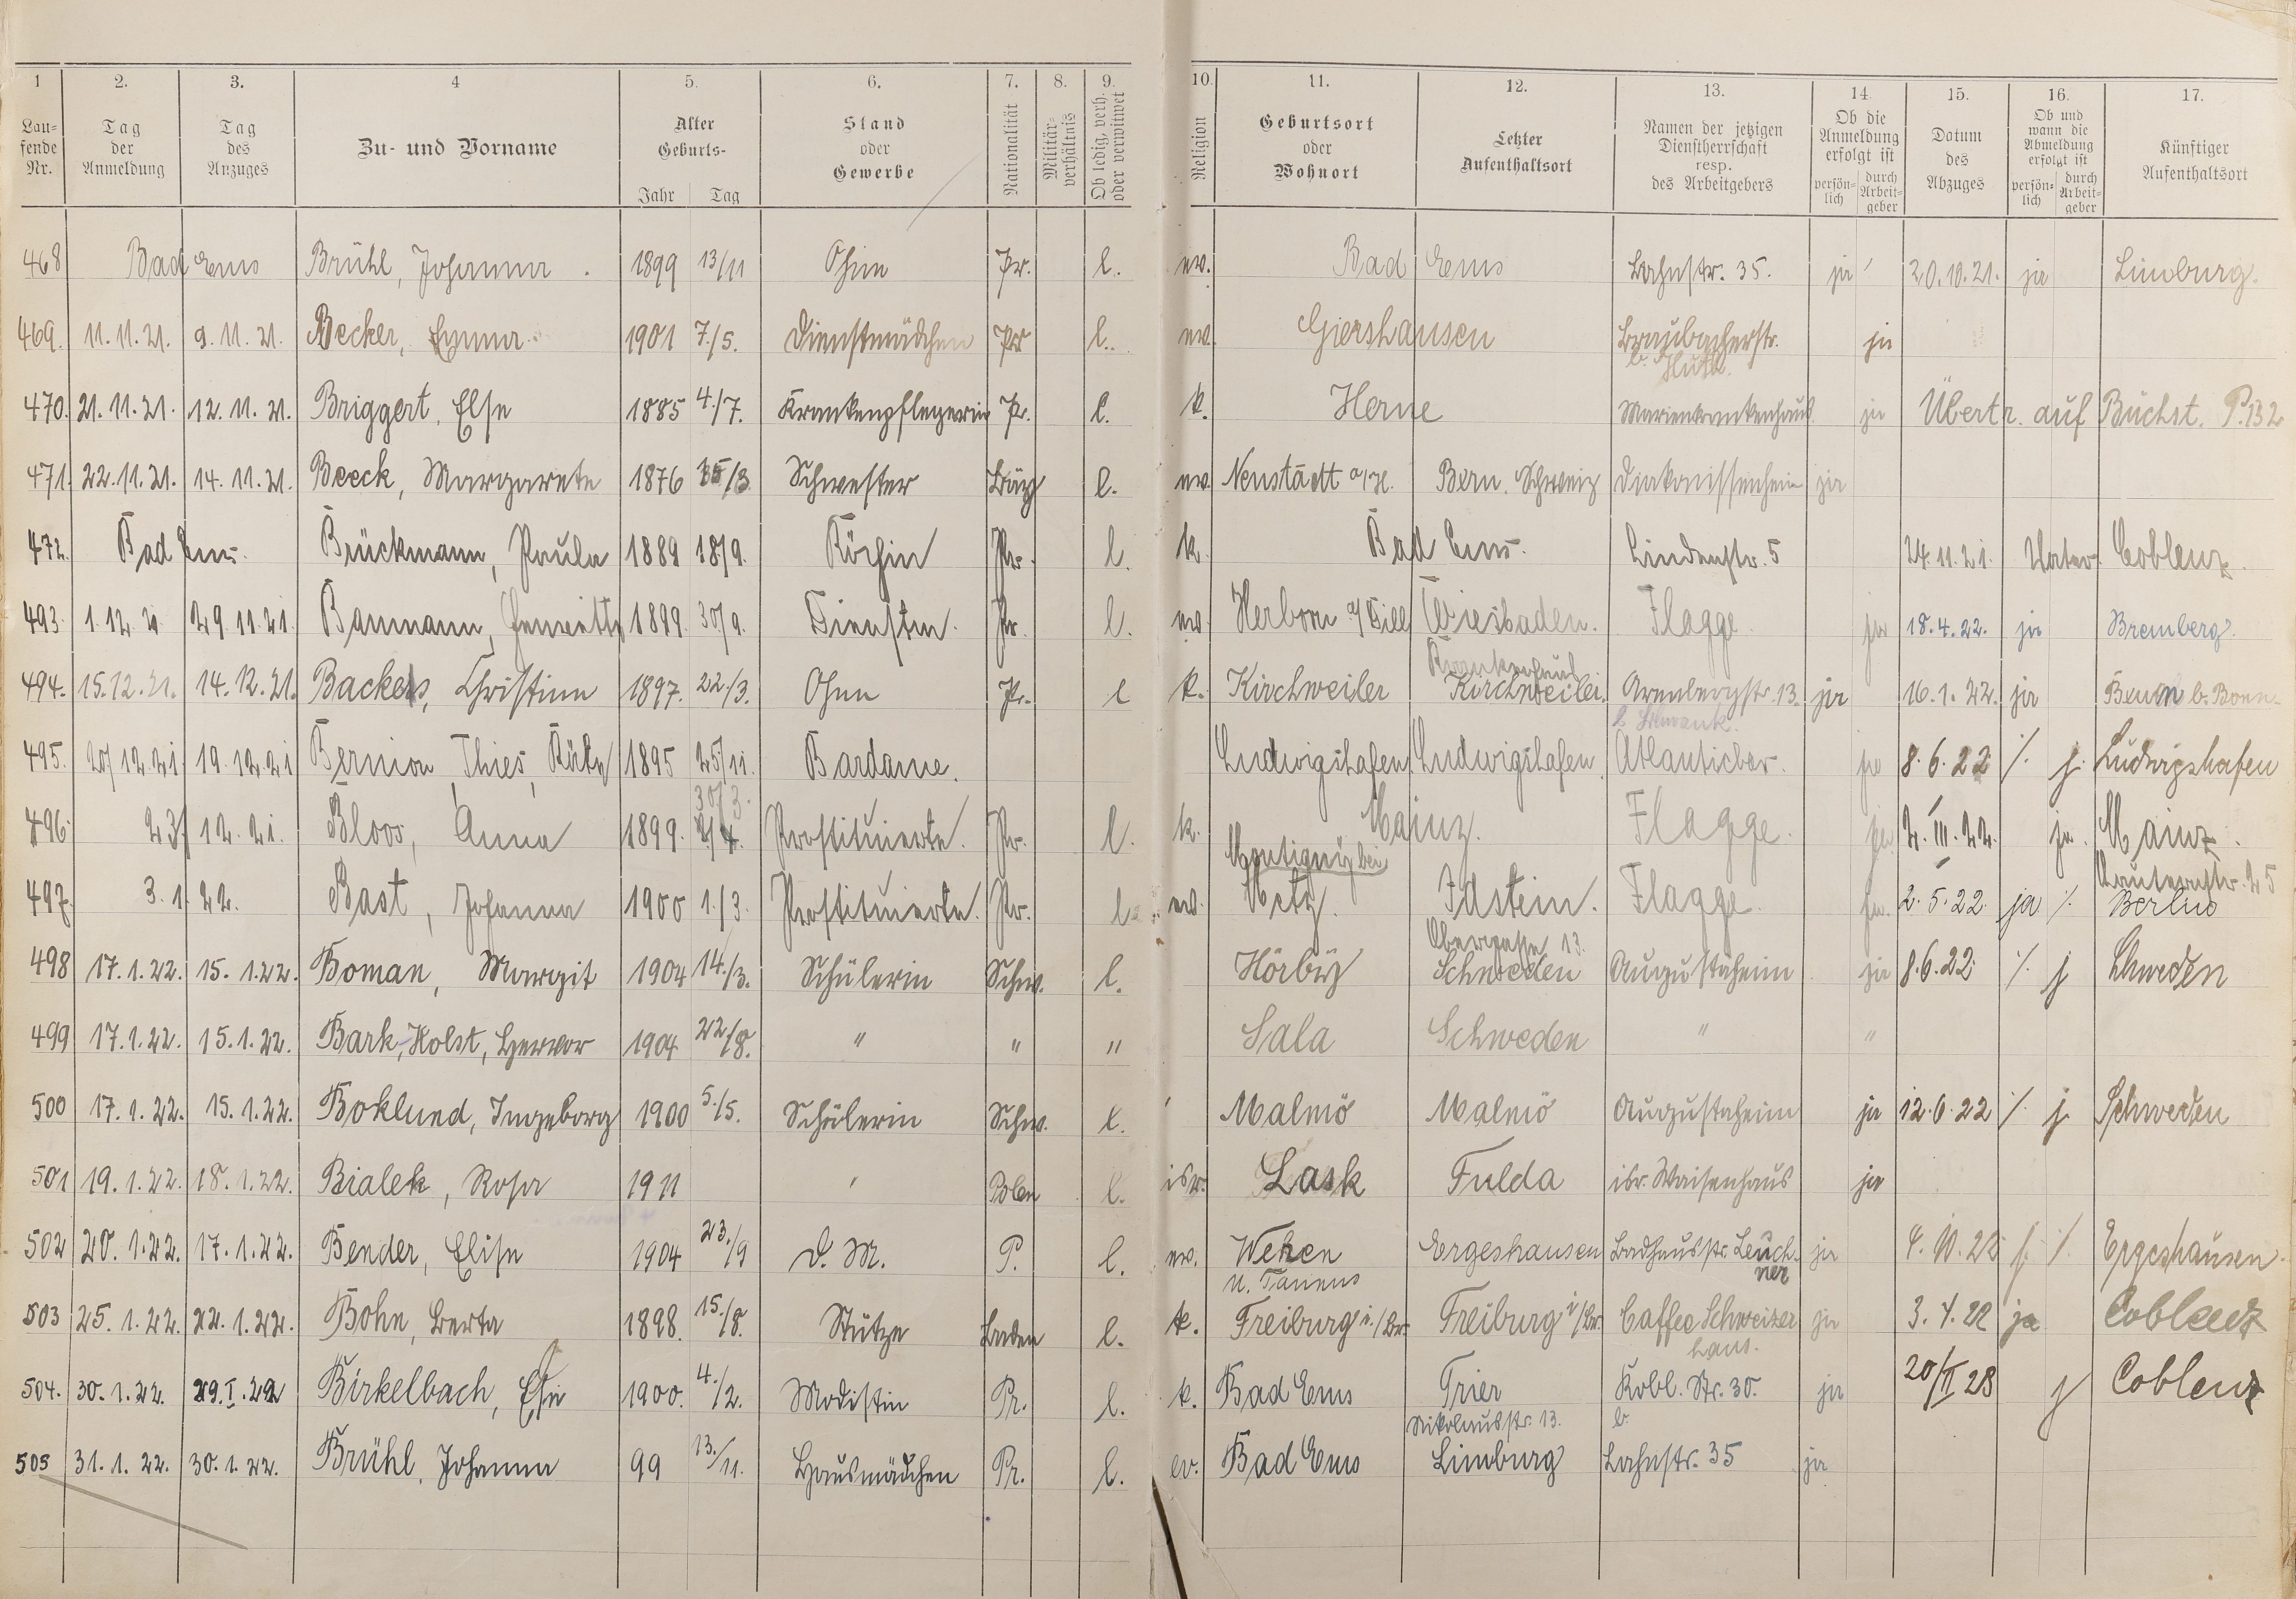 1 2. 3. 4 5. 6. 7. 8. 9. 10. 11. 12. 13. 14. 15. 16. 17.
Lau=
fende
Nr.
Tag
der
Anmeldung
Tag
des
Anzuges
Zu- und Vorname
Alter
Geburts-
Jahr Tag
Stand
oder
Gewerbe
Nationalität
Militär=
verhältnis
Ob ledig, verh.
oder verwitwet
Religion
Geburtsort
oder
Wohnort
Letzter
Aufenthaltsort
Namen der jetzigen
Dienstherrschaft
resp.
des Arbeitgebers
Ob die
Anmeldung
erfolgt ist
persön=
lich
durch
Arbeit=
geber
Datum
des
Abzuges
Ob und
wann die
Abmeldung
erfolgt ist
persön=
lich
durch
Arbeit=
geber
Künftiger
Aufenthaltsort
468 Bad Ems Brühl, Johanna. 1899 13/11 Ohne Pr. l. ev. Bad Ems Lahnstr. 35. ja 20.10.21. ja Limburg.
469. 11.11.21. 9.11.21. Becker, Emma 1901 7./5. Dienstmädchen Pr l. ev. Giershausen Braubacherstr. ja
b. Huth.
470. 21.11.21. 12.11.21. Briggert, Else 1885 4./7. Krankenpflegerin Pr. l. k. Herne Marienkrankenhaus ja Übertr. auf Buchst. P. 132
471. 22.11.21. 14.11.21. Beeck, Margarete 1876 /3. Schwester Bay l. ev. Neustadt a/H. Bern. Schweiz Diakonissenheim ja
472. Bad Ems. Brückmann, Paula 1889 18/9. Köchin Pr. l. k. Bad Ems. Lindenstr. 5 24.11.21. Vater Coblenz.
493. 1.12.21 29.11.21. Baumann, Henriette 1899. 30/9. Dienstm. Pr. l. ev. Herborn a/Dill Wiesbaden. Flagge. ja 18.4.22. ja Bremberg.
Krankenhaus
494. 15.12.21. 14.12.21. Backes, Christine 1897. 22./3. Ohne Pr. l k. Kirchweiler Kirchweiler. Arenbergstr. 13. ja 16.1.22. ja b. Bonn.
b. Schwank.
495. 20/12.21 19.12.21 Bernion, Thies, Käte 1895 25/11. Bardame. Ludwigshafen Ludwigshafen. Atlanticbar. ja 8.6.22 /. j. Ludwigshafen
30/3.
496. 23/12.21. Bloos, Anna 1899. 2/4. Prostituierte. Pr. l. k. Mainz. Flagge. ja 2.III.22. ja. Mainz.
Montigny bei
25
497. 3.1.22. Bast, Johanna 1900 1./3. Prostituierte. Pr. l. ev. Metz. Idstein. Flagge. ja. 2.5.22. ja /. Berlin
Obergasse 13.
498 17.1.22. 15.1.22. Boman, Margit 1904 14./3. Schülerin Schw. l. Hörby Schweden Augustaheim ja 8.6.22 /. j Schweden
499 17.1.22. 15.1.22. Bark-Holst, Hervor 1904 22/8. " " " Sala Schweden " "
500 17.1.22. 15.1.22. Boklund, Ingeborg 1900 5./5. Schülerin Schw. l. Malmö Malmö Augustaheim ja 12.6.22 /. j. Schweden
501 19.1.22. 18.1.22. Bialek, Rosa 1911 Polen l. isr. Lask Fulda isr. Waisenhaus ja
502 20.1.22. 17.1.22. Bender, Elise 1904 23./9 D. M. P. l. ev. Wehen Ergeshausen Badhausstr. Leuch- ja 4.10.22 j. /. Ergeshausen.
u. Taunus ner
503 25.1.22. 22.1.22. Bohn, Berta 1898. 15./8. Stütze Baden l. k. Freiburg i./Br. Freiburg i/Br. Caffee Schweizer ja 3.4.22 ja Coblenz
haus.
504. 30.1.22. 29.I.22 Birkelbach, Else 1900. 4./2. Modistin Pr. l. k. Bad Ems Trier Kobl. Str. 30. ja 20/II 23 j Coblenz
Nikolausstr. 13. b.
505 31.1.22. 30.1.22. Brühl, Johanna 99 13./11. Hausmädchen Pr. l. ev. Bad Ems Limburg Lahnstr. 35 ja